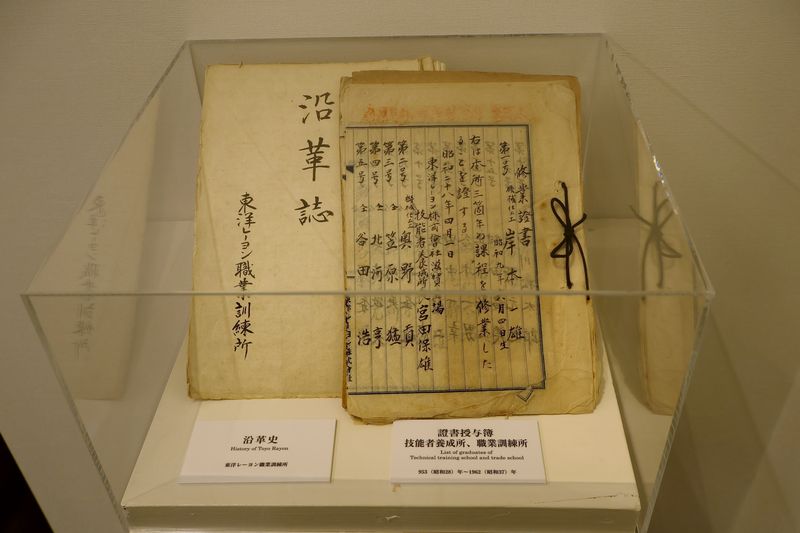 沿革誌
東洋レーヨン職業訓練所
修業證書
第一号 機械仕上工 岸本一雄
昭和九年 月四日生
右は本所三箇年の課程を修業した
ことを證する
昭和二十八年四月一日
東洋レーヨン株式會社滋賀工場
技能者養成所長 宮田保雄
第二号 機械仕上工 奥野 貢
第三号 仝 笠原 猛
第四号 仝 北河 亨
第五号 仝 谷田 浩
沿革史
History of Toyo Rayon
東洋レーヨン職業訓練所
證書授与簿
技能者養成所、職業訓練所
List of graduates of
Technical training school and trade school
953（昭和28）年〜1962（昭和37）年